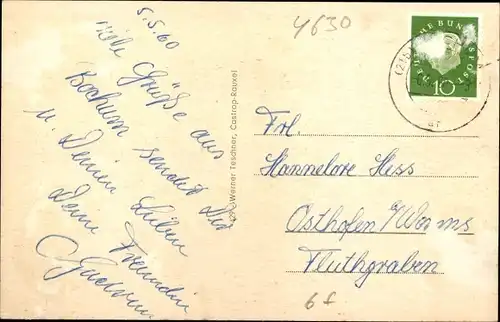 5.5.60
Viele Grüße aus
Bochum sendet Dir
u. Deinen Lieben
Deine Freundin
Gudrun
4630
Werner Teschner, Castrop-Rauxel
DEUTSCHE BUNDESPOST
10
Frl.
Hannelore Hess
Osthofen b/Worms
Fluthgraben
6 f